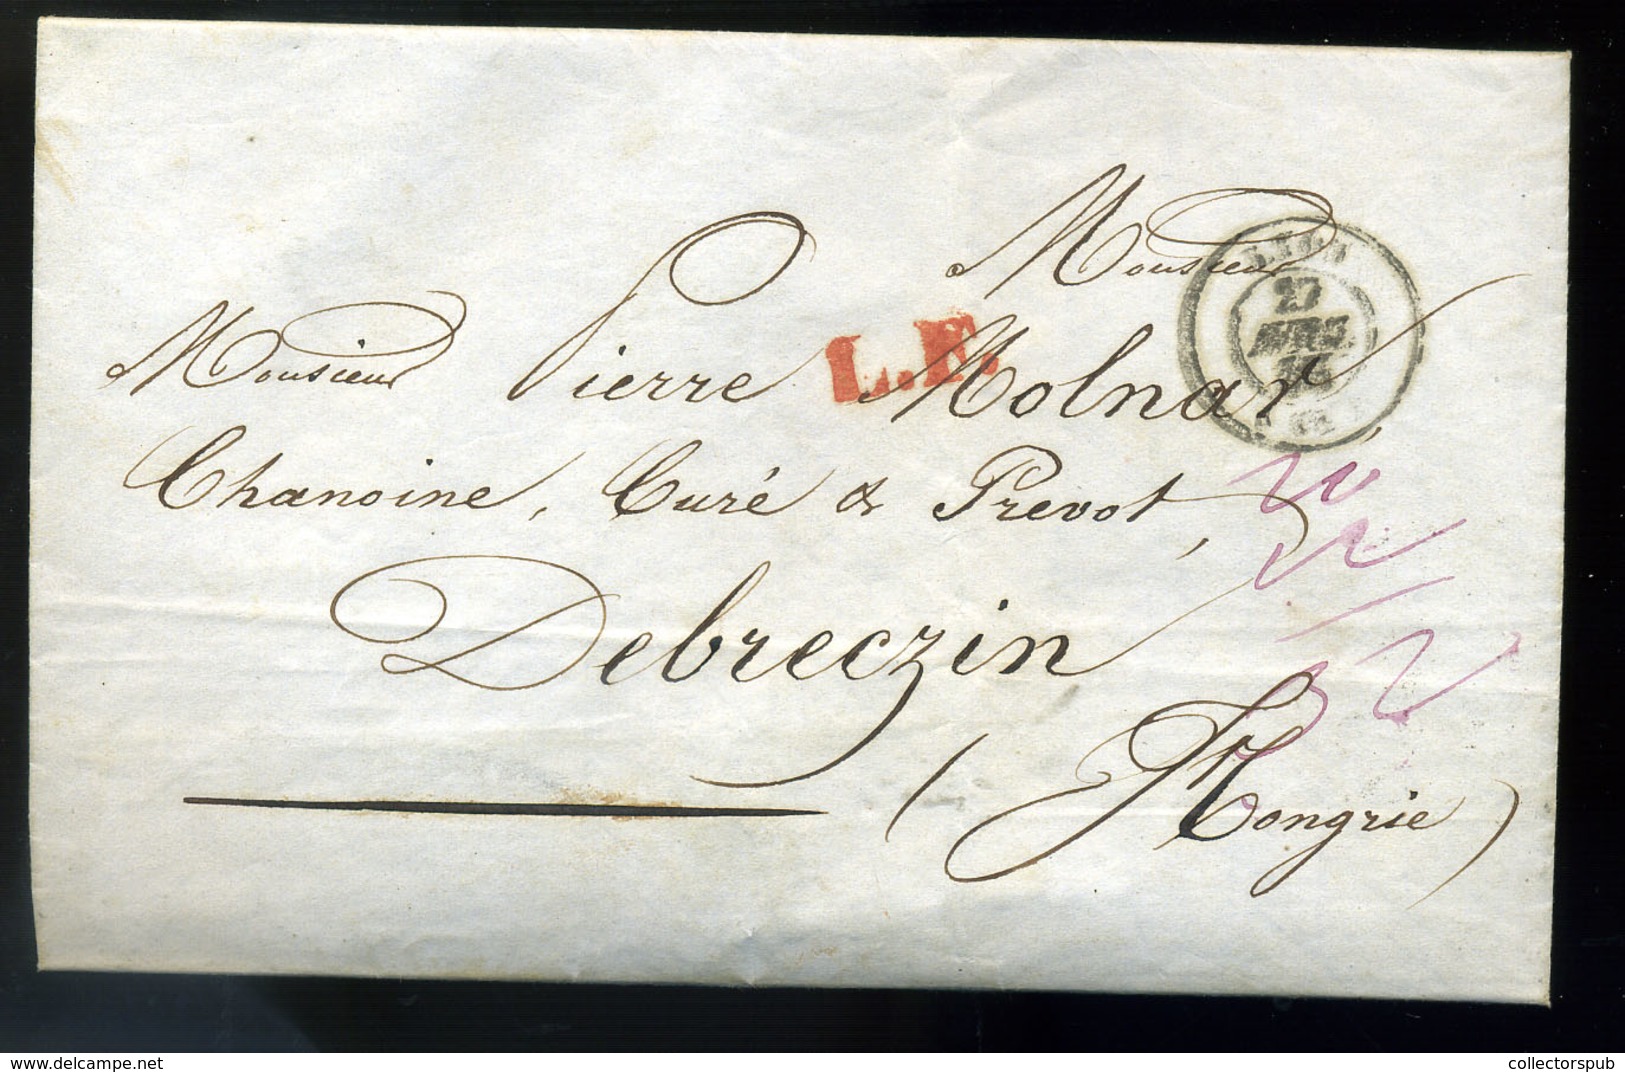 Monsieur
Monsieur Pierre Molnar,
Chanoine, Curé & Prevot,
Debreczin
(Hongrie)
L.F.
27
collectorspub